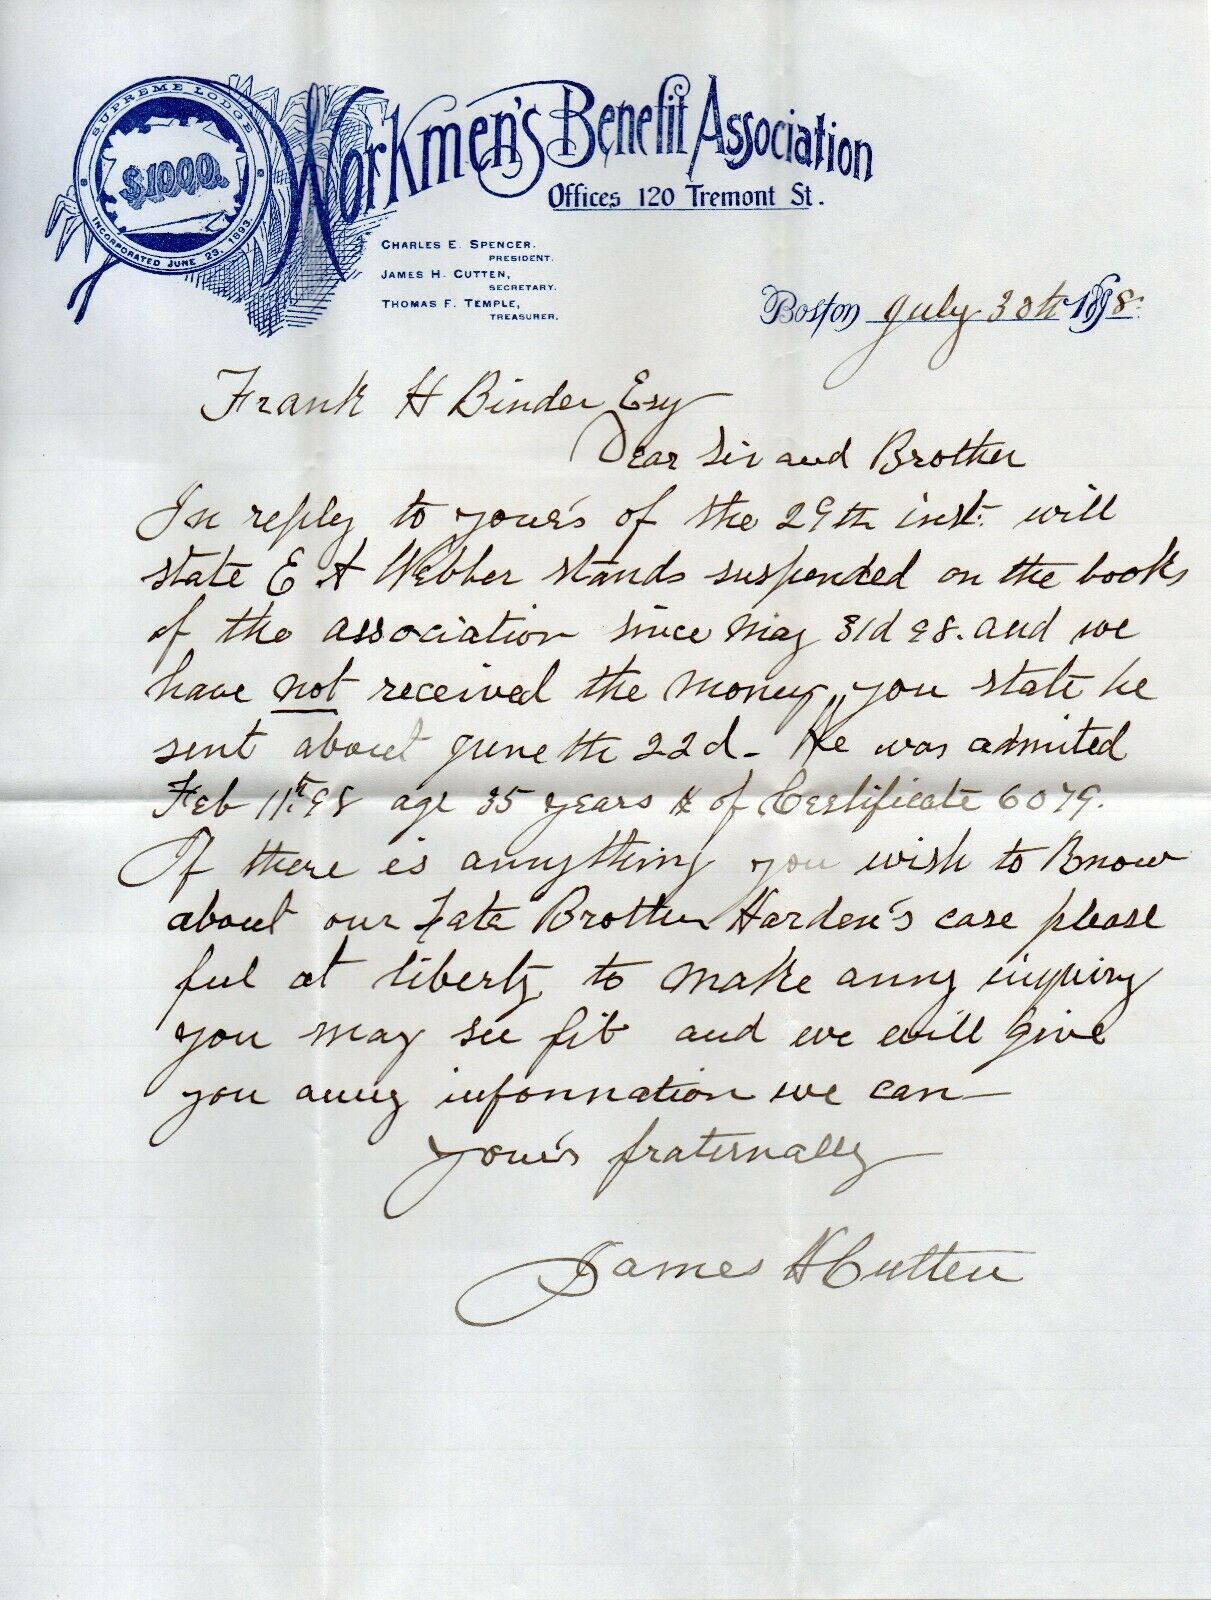 SUPREME LODGE
$1000.
INCORPORATED JUNE 23, 1893.
Workmen's Benefit Association
Offices 120 Tremont St.
CHARLES E. SPENCER.
PRESIDENT.
JAMES H. CUTTEN,
SECRETARY.
THOMAS F. TEMPLE,
TREASURER.
Boston July 30th 1898.
Frank H Binder Esq
Dear Sir and Brother
In reply to your's of the 29th inst. will
state E A Webber stands suspended on the books
of the association since May 31d 98. and we
have not received the money you state he
sent about June th 22d - He was admited
Feb 11th 98 age 35 years # of Certificate 6079.
If there is annything you wish to Know
about our Late Brother Harden's case please
feel at liberty to make anny inquiry
you may see fit and we will give
you anny information we can—
Your's fraternally
James H Cutten